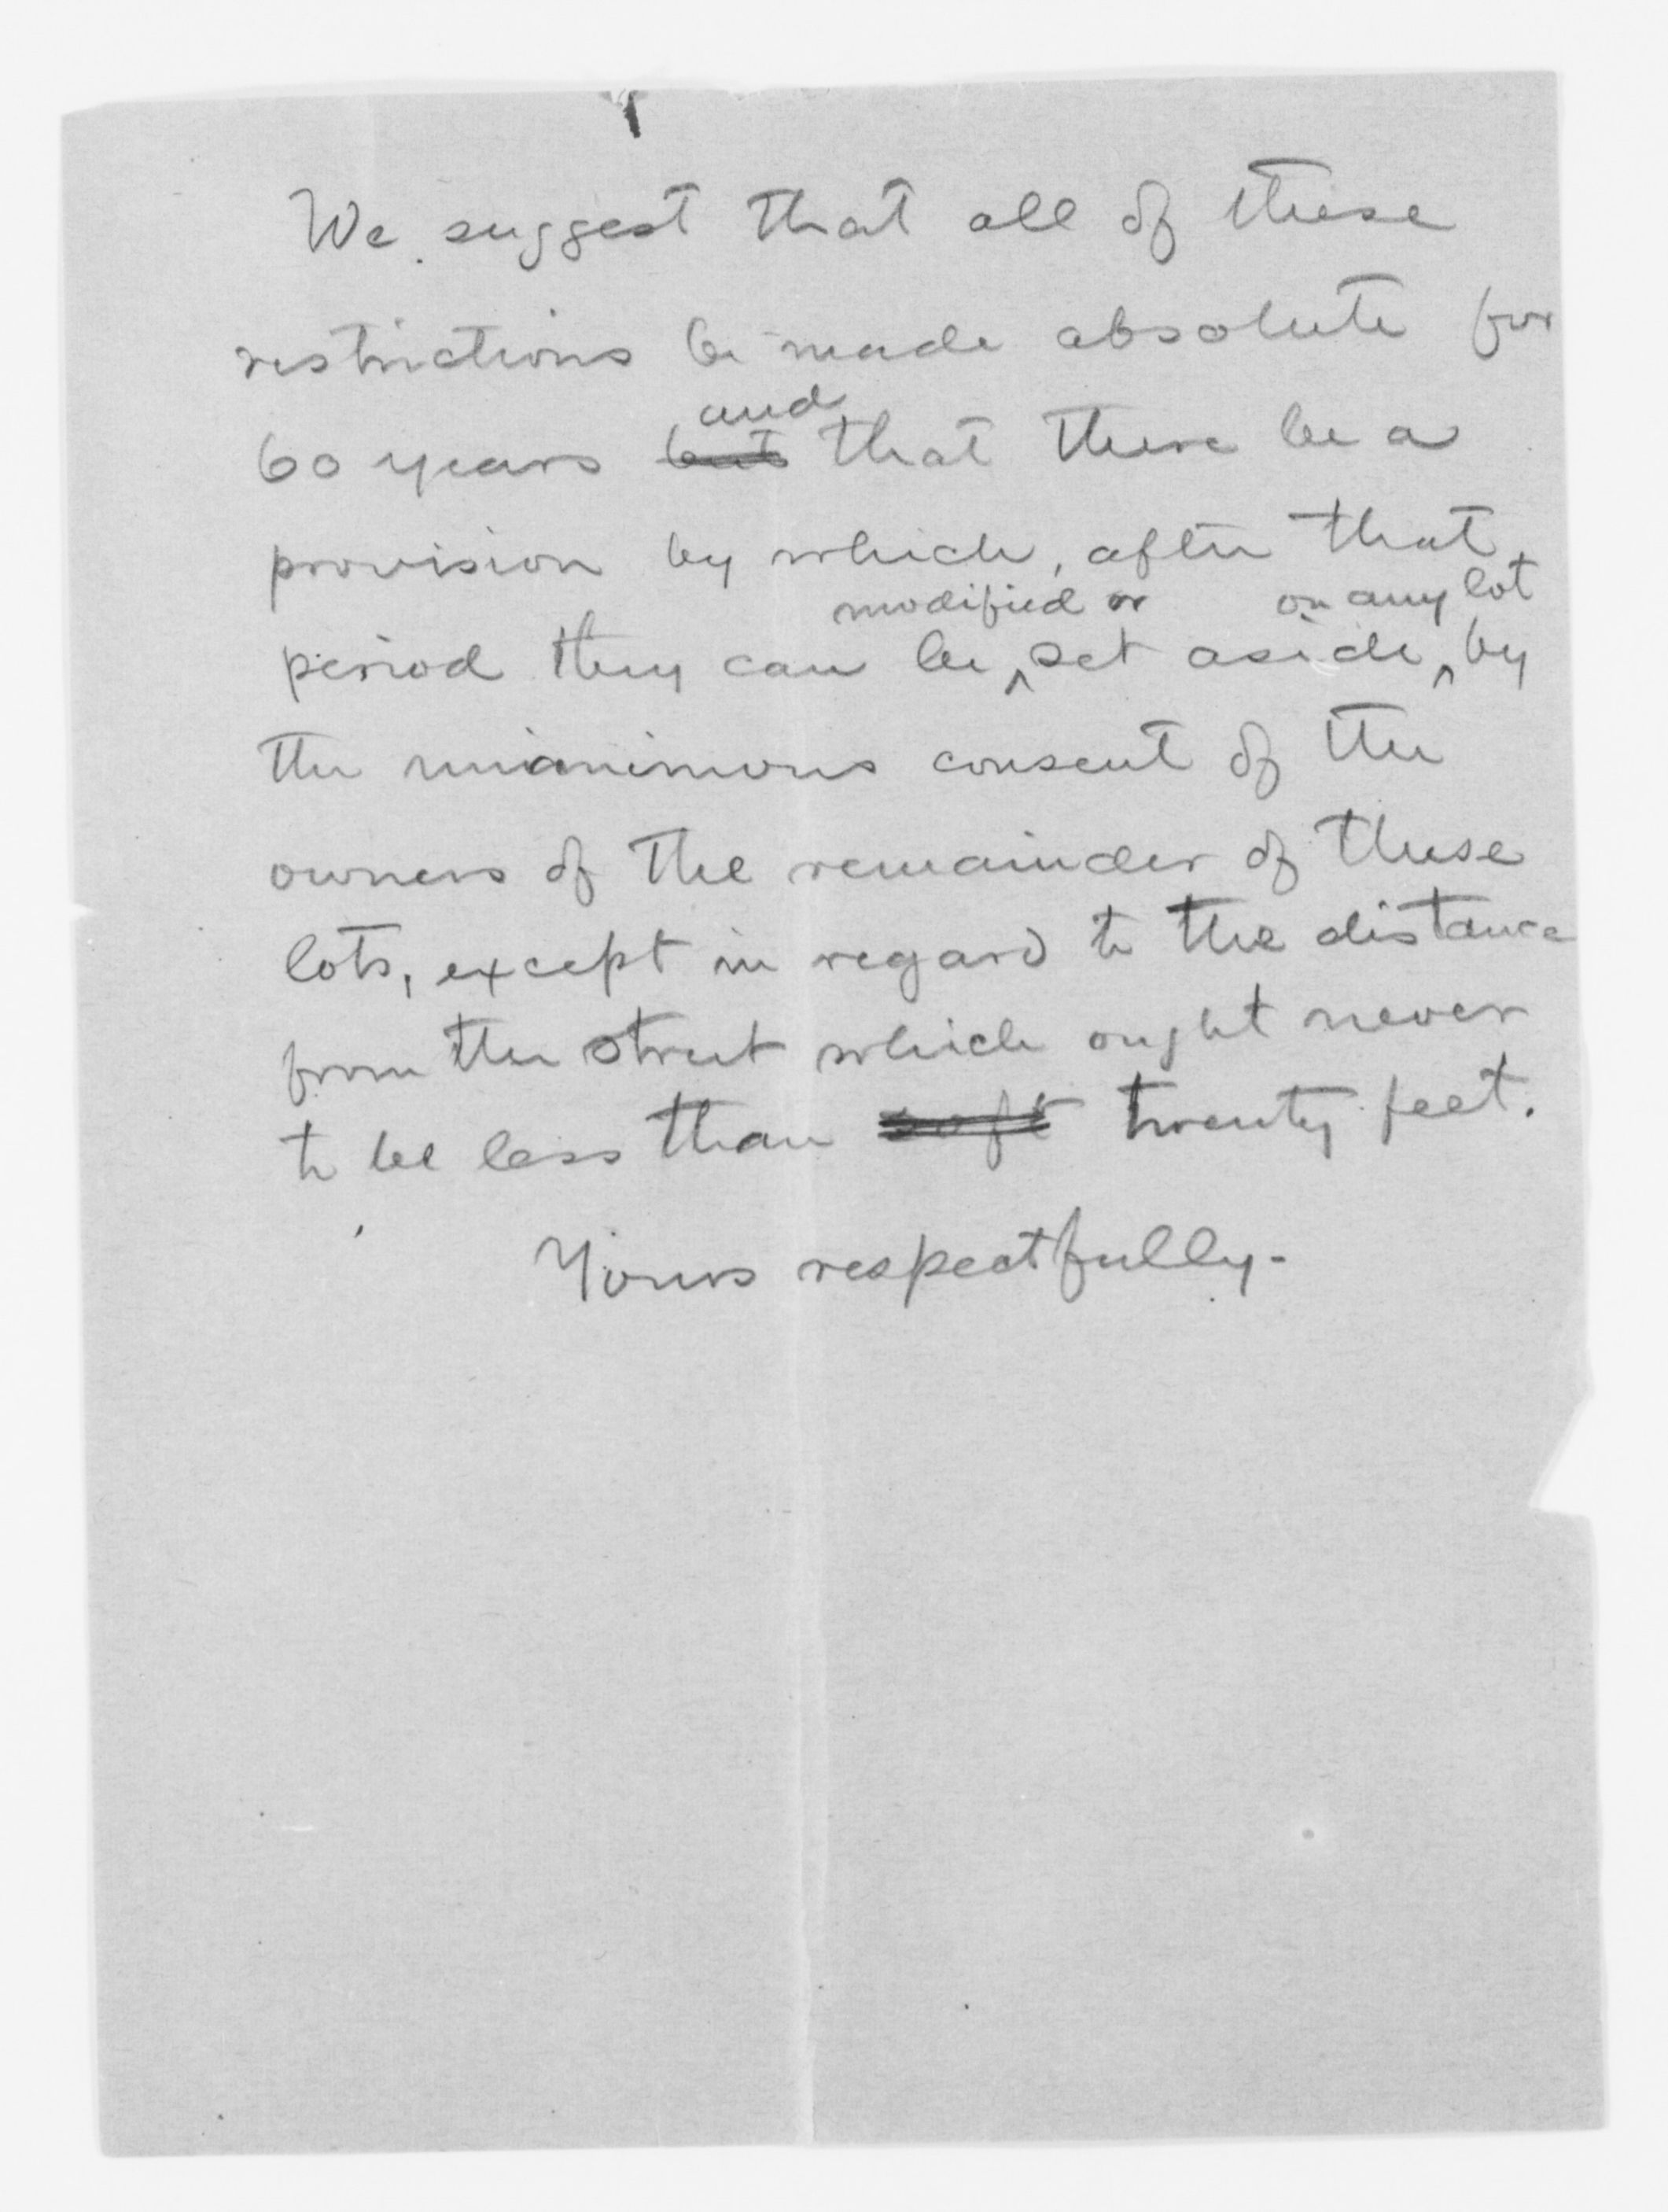 We suggest that all of these
restrictions be made absolute for
and
60 years but that there be a
provision by which, after that
modified or on any lot
period they can be set aside, by
the unanimous consent of the
owners of the remainder of these
lots, except in regard to the distance
from the street which ought never
to be less than twenty feet.
Yours respectfully-